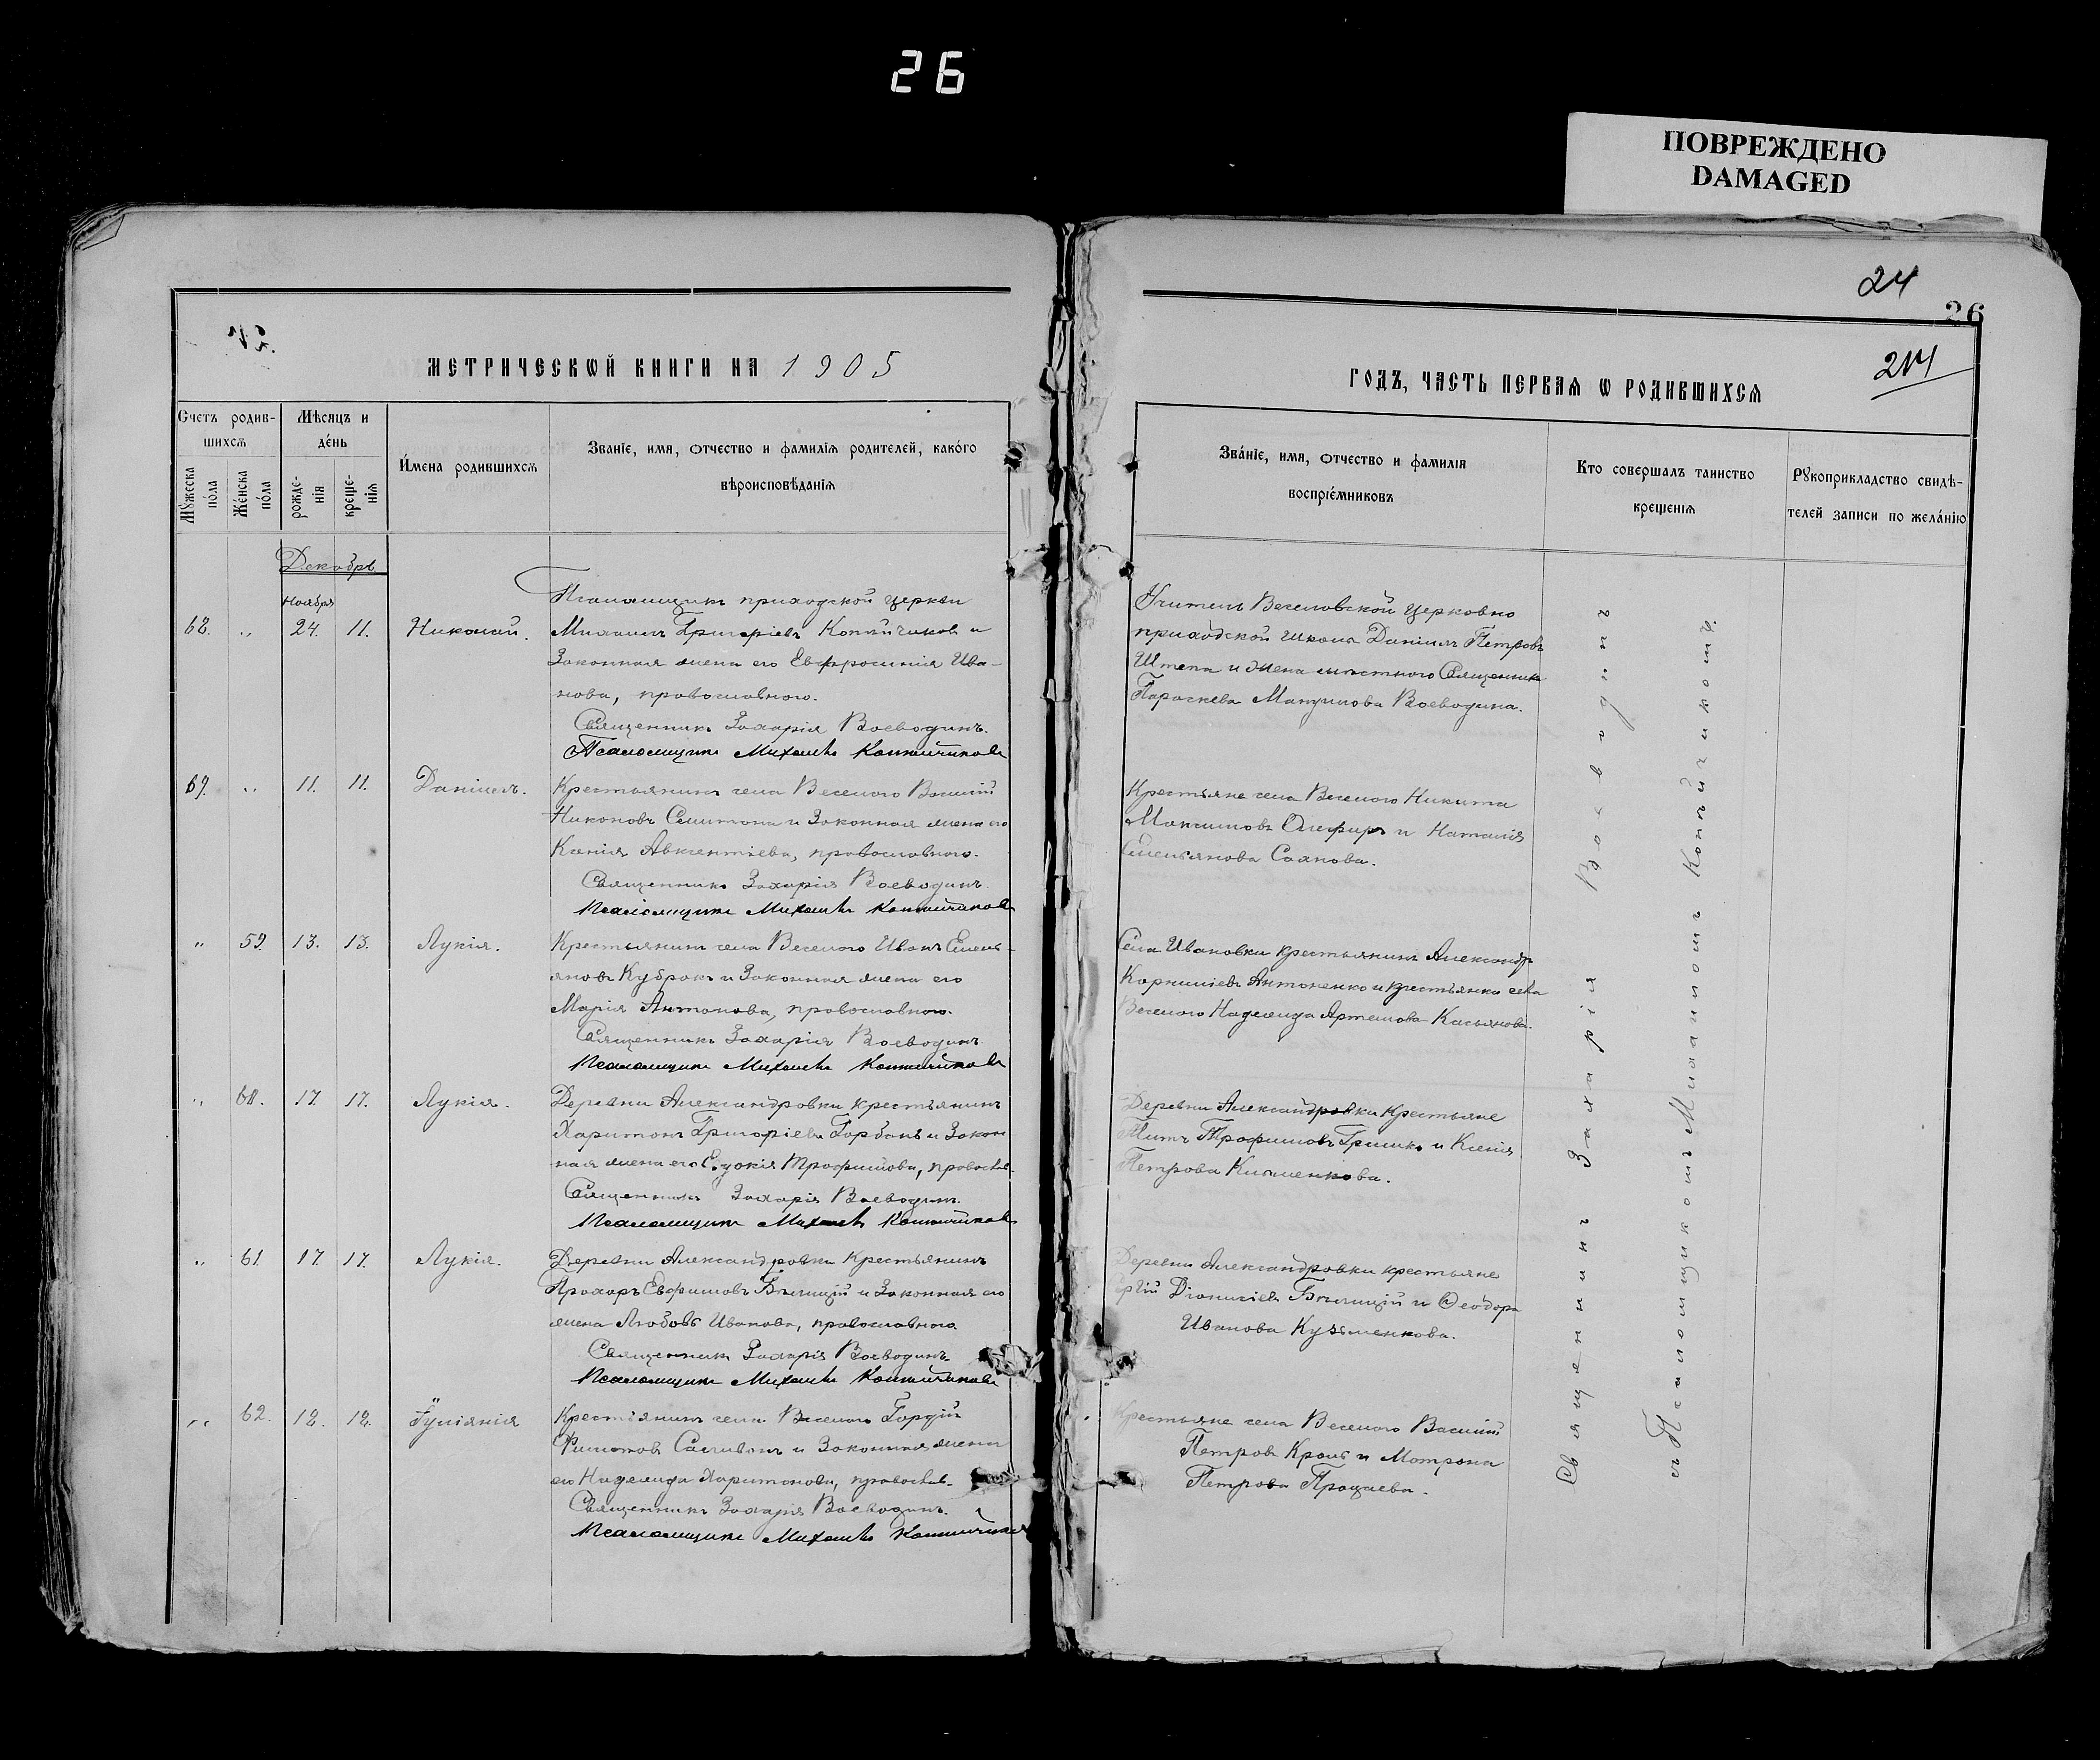 26
ПОВРЕЖДЕНО
DAMAGED
24
26
МЕТРИЧЕСКѠЙ КНИГИ НА 1905
ГОДЪ, ЧАСТЬ ПЕРВАѦ Ѡ РОДИВШИХСѦ
214
Счетъ родив-
шихсѧ
Мѣсяцъ и
де́нь
И́мена родившихсѧ
Званіе, имя, отчество и фамилія родителей, како́го
вѣроисповѣданіѧ
Мꙋжеска
по́ла
Же́нска
по́ла
рожде-
нія
креще-
нія
Зва́ніе, имя, отчество и фамилія
воспріе́мниковъ
Кто совершалъ таинство
крещенія
Рꙋкоприкладство свидѣ-
телей записи по жела́нію
Декабрь
Ноября
68. „ 24. 11. Николай.
Псаломщикъ приходской церкви
Михаилъ Григоріевъ Копѣйчиковъ и
Законная жена его Евфросинія Ива-
нова, православного.
Священникъ Захарія Воеводинъ.
Псаломщикъ Михаилъ Копѣйчиковъ
Учитель Веселовской церковно
приходской школы Даніилъ Петровъ
Штепа и жена мѣстного Священника
Параскева Воеводина.
69. „ 11. 11. Даніилъ.
Крестьянинъ села Веселого Василій
Никоновъ и Законная жена его
Ксенія Авксентіева, православного.
Священникъ Захарія Воеводинъ.
Псаломщикъ Михаилъ Копѣйчиковъ
Крестьяне села Веселого Никита
Максимовъ Олефиръ и Наталія
Емельянова Сахнова.
„ 59. 13. 13. Лукія.
Крестьянинъ села Веселого Иванъ Емель-
яновъ Кубракъ и Законная жена его
Марія Антонова, православного.
Священникъ Захарія Воеводинъ.
Псаломщикъ Михаилъ Копѣйчиковъ
Села Ивановки крестьянинъ Александръ
Корниліевъ Антоненко и крестьянка села
Веселого Надежда Артемова Касьянова.
„ 60. 17. 17. Лукія.
Деревни Александровки крестьянинъ
Харитонъ Григоріевъ Горбань и Закон
ная жена его Евдокія Трофимова, православ.
Священникъ Захарія Воеводинъ.
Псаломщикъ Михаилъ Копѣйчиковъ
Деревни Александровки Крестьяне
Титъ Трофимовъ Гришко и Ксенія
Петрова
„ 61. 17. 17. Лукія.
Деревни Александровки Крестьянинъ
Прохоръ Евфимовъ Бѣлицкій и Законная его
жена Любовь Иванова, православного.
Священникъ Захарія Воеводинъ.
Псаломщикъ Михаилъ Копѣйчиковъ
Деревни Александровки крестьяне
Діонисіевъ Бѣлицкій и Ѳеодора
Иванова Кузьменкова.
„ 62. 18. 18. Іуліанія
Крестьянинъ села Веселого Гордій
Филиповъ Саливонъ и Законная жена
его Надежда Харитонова, православ.
Священникъ Захарія Воеводинъ.
Псаломщикъ Михаилъ Копѣйчиковъ
Крестьяне села Веселого Василій
Петровъ Кроль и Матрона
Петрова
Священникъ Захарія Воеводинъ
съ Псаломщикомъ Михаиломъ Копѣйчиковымъ.